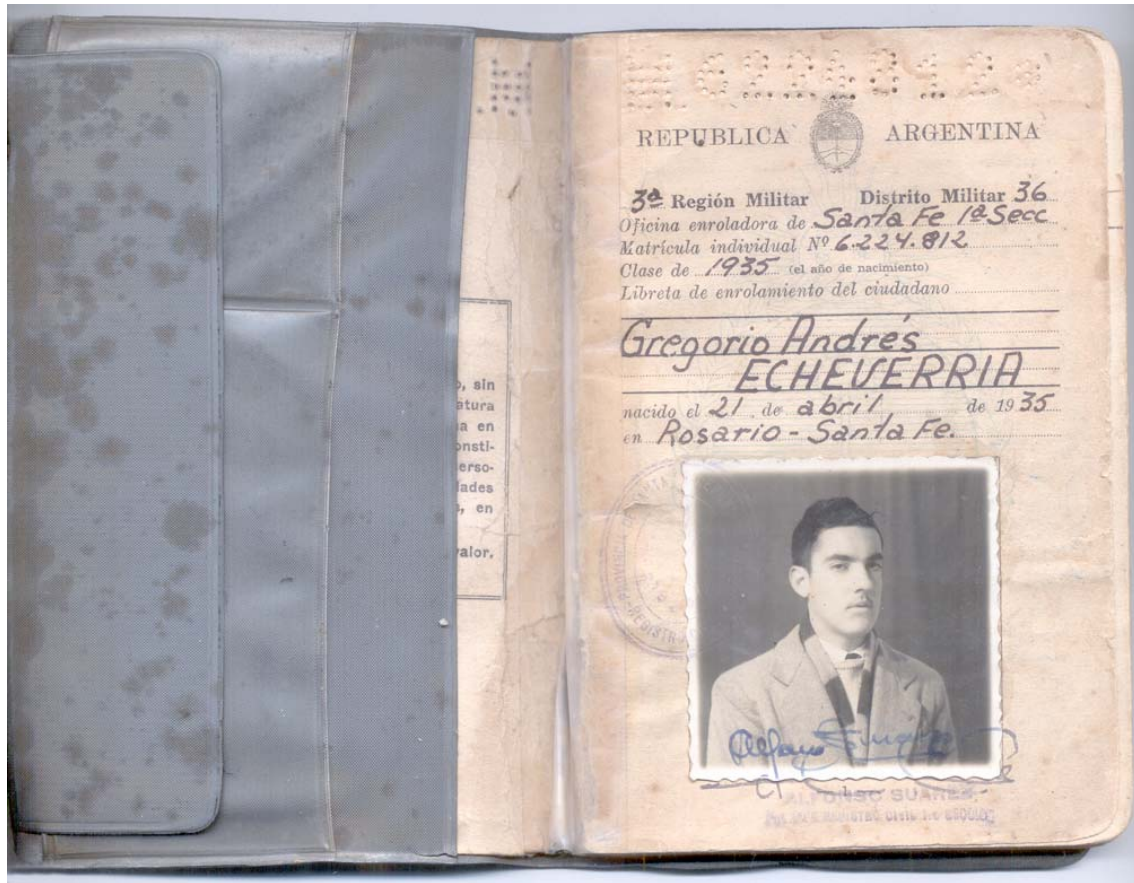 o, sin
atura
na en
onsti-
erso-
lades
s, en
valor.
REPUBLICA ARGENTINA
3ª Región Militar Distrito Militar 36
Oficina enroladora de Santa Fe 1ª Secc
Matrícula individual Nº 6.224.812
Clase de 1935 (el año de nacimiento)
Libreta de enrolamiento del ciudadano
Gregorio Andrés
ECHEVERRIA
nacido el 21 de abril de 1935
en Rosario - Santa Fe.
ALFONSO SUAREZ